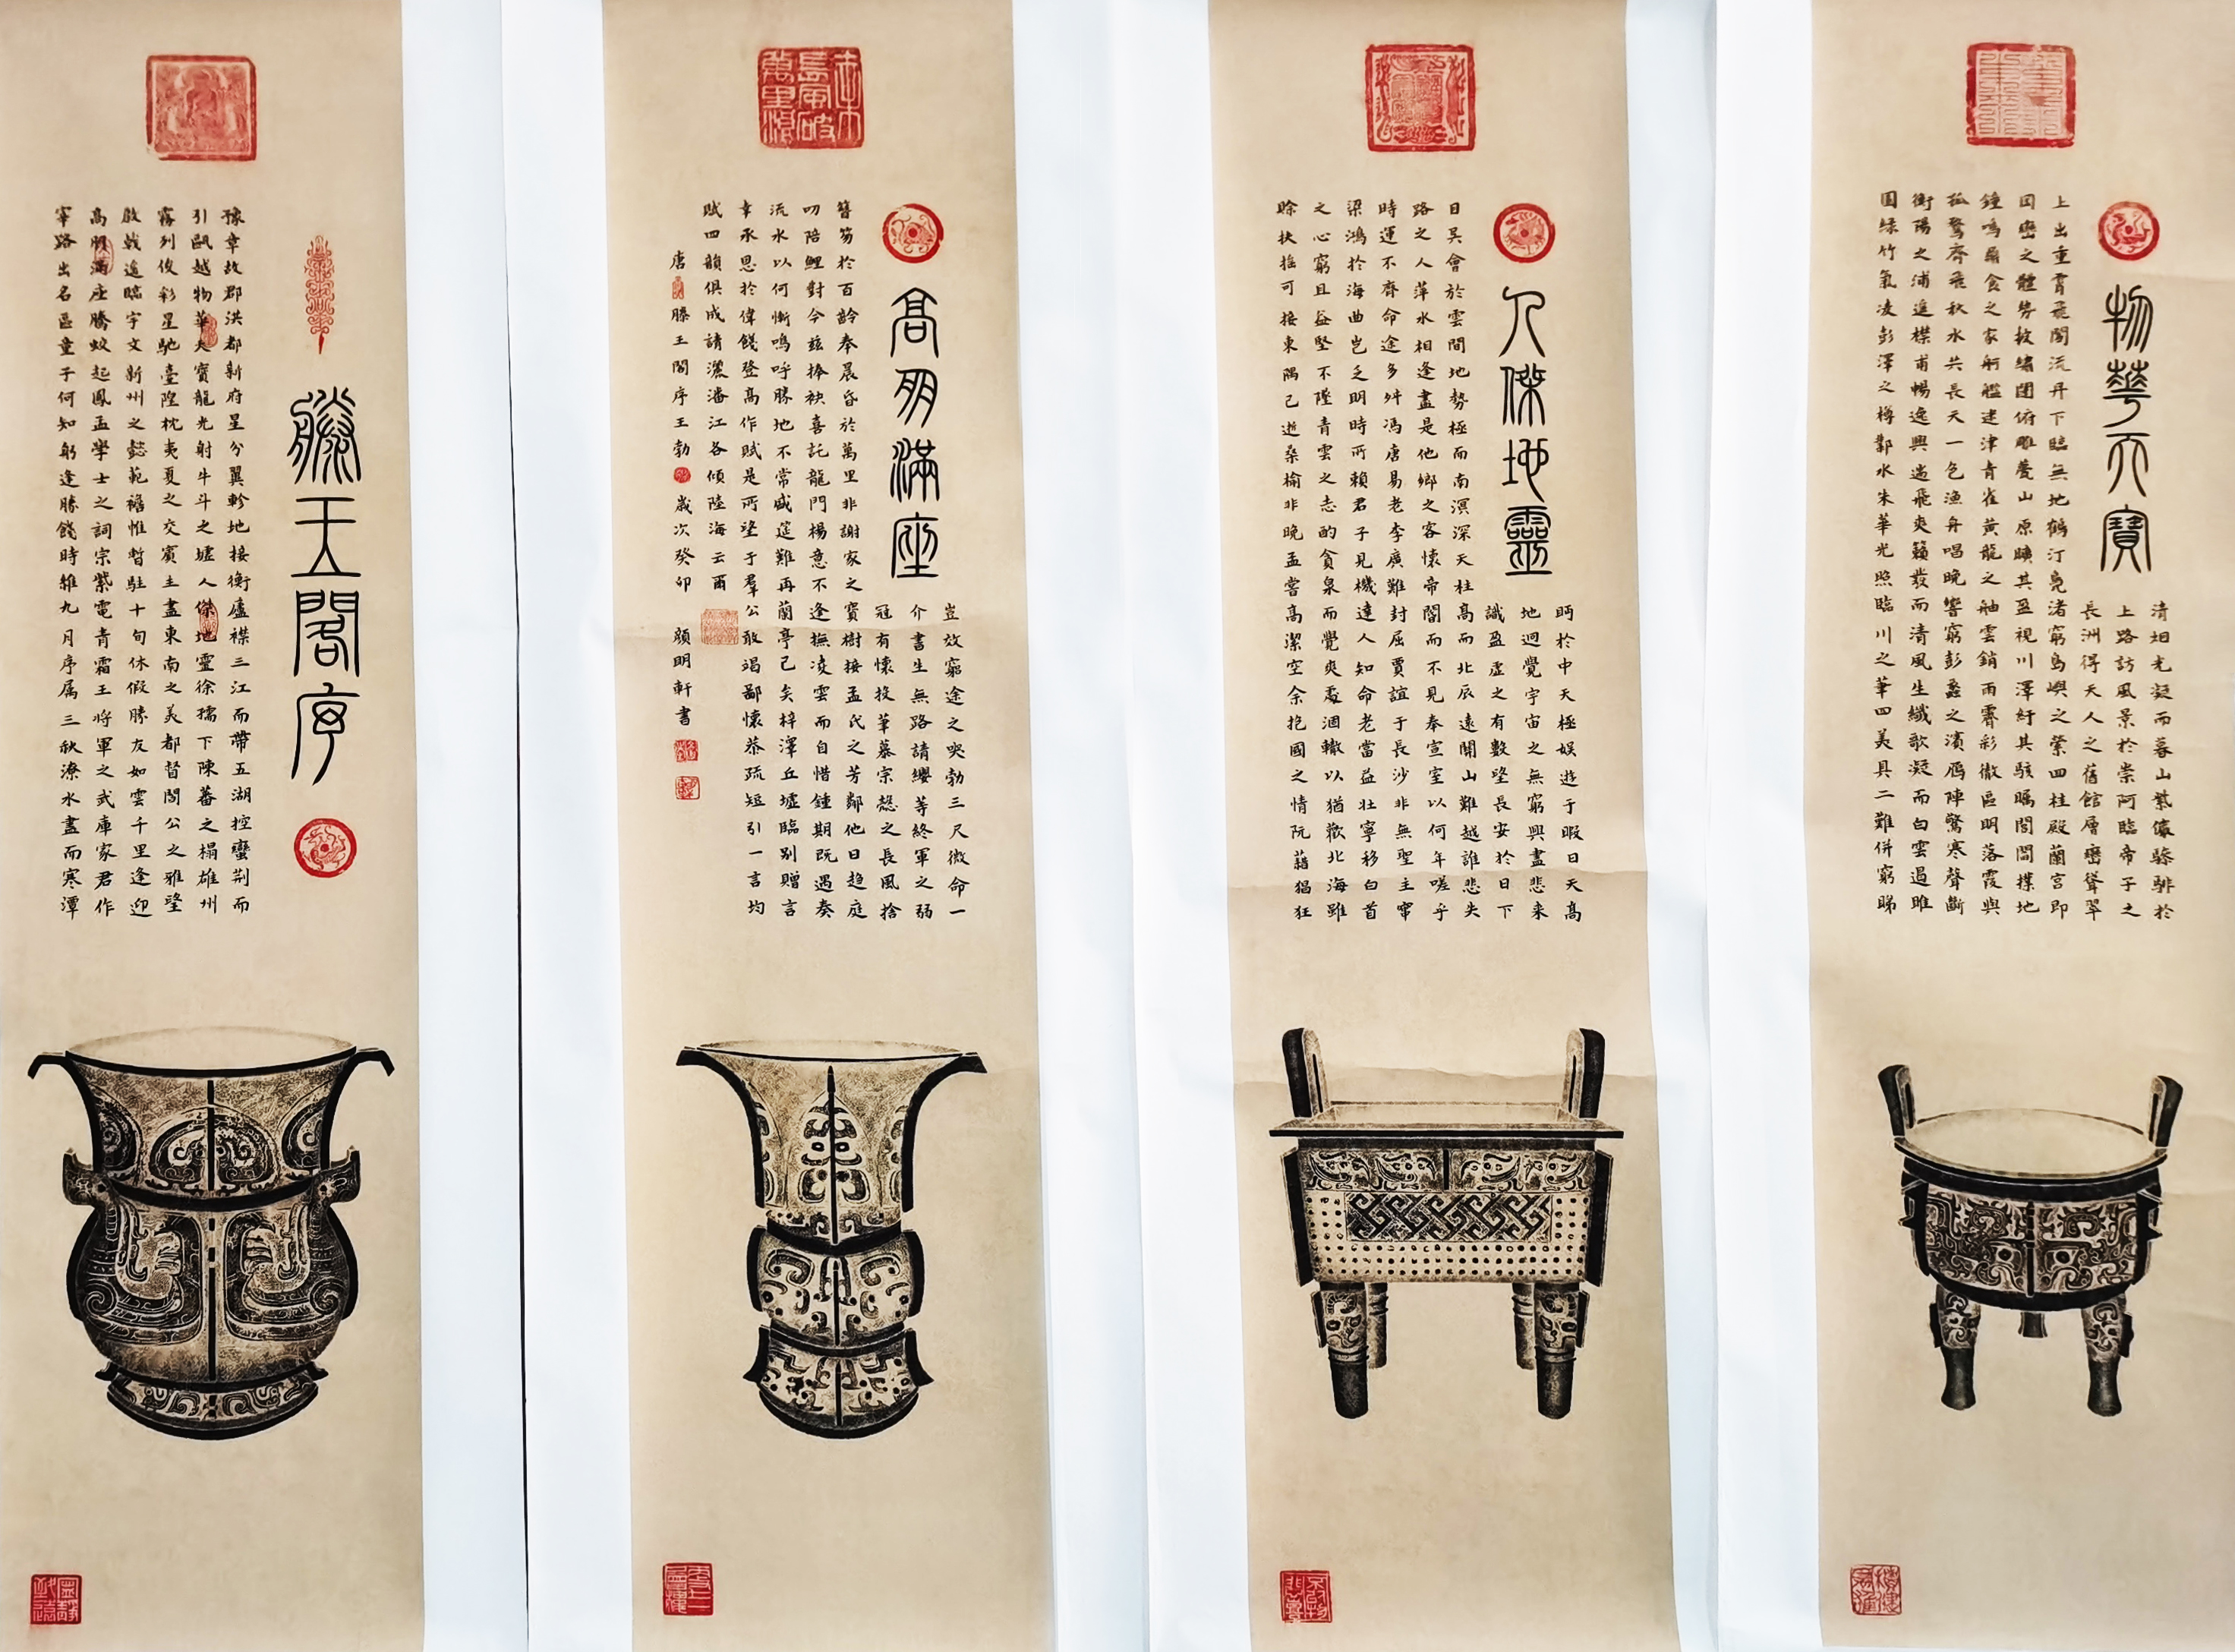 滕王閣序
豫章故郡洪都新府星分翼軫地接衡廬襟三江而帶五湖控蠻荊而
引甌越物華天寶龍光射牛斗之墟人傑地靈徐孺下陳蕃之榻雄州
霧列俊彩星馳臺隍枕夷夏之交賓主盡東南之美都督閻公之雅望
啟戟遙臨宇文新州之懿範襜惟暫駐十旬休假勝友如雲千里逢迎
高朋滿座騰蛟起鳳孟學士之詞宗紫電青霜王將軍之武庫家君作
宰路出名區童子何知躬逢勝餞時維九月序属三秋潦水盡而寒潭
物華天寶
清烟光凝而暮山紫儼驂騑於
上路訪風景於崇阿臨帝子之
長洲得天人之舊館層巒聳翠
上出重霄飛閣流丹下臨無地鶴汀鳧渚窮島嶼之縈回桂殿蘭宮即
岡巒之體勢披繡闥俯雕甍山原曠其盈視川澤紆其駭矚閭閻撲地
鐘鳴鼎食之家舸艦迷津青雀黃龍之舳雲銷雨霽彩徹區明落霞與
孤鶩齊飛秋水共長天一色漁舟唱晚響窮彭蠡之濱雁陣驚寒聲斷
衡陽之浦遙襟甫暢逸興遄飛爽籟發而清風生纖歌凝而白雲遏睢
園綠竹氣凌彭澤之樽鄴水朱華光照臨川之筆四美具二難併窮睇
人傑地靈
眄於中天極娛遊于暇日天高
地迥覺宇宙之無窮興盡悲来
識盈虛之有數望長安於日下
目吳會於雲間地勢極而南溟深天柱高而北辰遠關山難越誰悲失
路之人萍水相逢盡是他鄉之客懷帝閽而不見奉宣室以何年嗟乎
時運不齊命途多舛馮唐易老李廣難封屈賈誼于長沙非無聖主竄
梁鴻於海曲豈乏明時所賴君子見機達人知命老當益壯寧移白首
之心窮且益堅不墜青雲之志酌貪泉而覺爽處涸轍以猶歡北海雖
賒扶搖可接東隅已逝桑榆非晚孟嘗高潔空余抱國之情阮藉猖狂
高朋滿座
豈效窮途之哭勃三尺微命一
介書生無路請纓等終軍之弱
冠有懷投筆慕宗愨之長風捨
簪笏於百齡奉晨昏於萬里非謝家之寶樹接孟氏之芳鄰他日趨庭
叨陪鯉對今茲捧袂喜託龍門楊意不逢撫凌雲而自惜鍾期既遇奏
流水以何慚嗚呼勝地不常盛筵難再蘭亭已矣梓澤丘墟臨別贈言
幸承恩於偉餞登高作賦是所望于羣公敢竭鄙懷恭疏短引一言均
賦四韻俱成請灑潘江各傾陸海云爾
唐滕王閣序王勃歲次癸卯顏明軒書